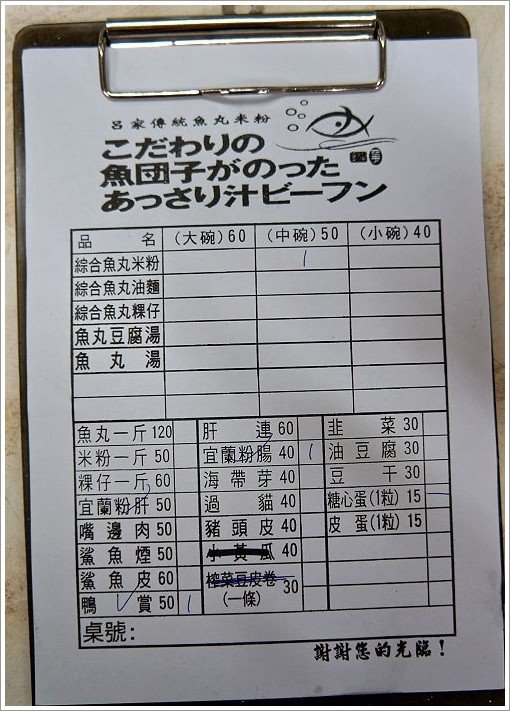 呂家傳統魚丸米粉
こだわりの
魚団子がのった
あっさり汁ビーフン
品 名 (大碗)60 (中碗)50 (小碗)40
綜合魚丸米粉
綜合魚丸油麵
綜合魚丸粿仔
魚丸豆腐湯
魚丸湯
魚丸一斤 120 肝連 60 韭菜 30
米粉一斤 50 宜蘭粉腸 40 油豆腐 30
粿仔一斤 60 海帶芽 40 豆干 30
宜蘭粉肝 50 過貓 40 糖心蛋(1粒) 15
嘴邊肉 50 豬頭皮 40 皮蛋(1粒) 15
鯊魚煙 50 小黃瓜 40
鯊魚皮 60 榨菜豆皮卷(一條) 30
鴨賞 50
桌號:
謝謝您的光臨!